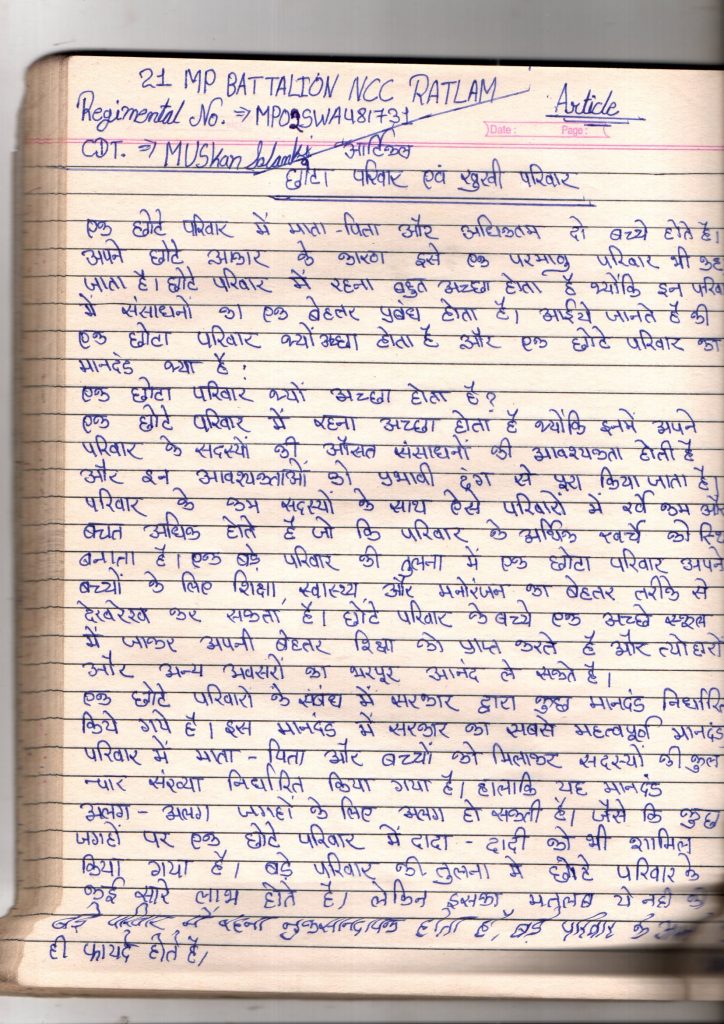 21 MP BATTALION NCC RATLAM
Regimental No. ⇒ MP02SWA481731
Article
Date: Page:
CDT. ⇒ MUSKan Salanki
आर्टिकल
छोटा परिवार एवं सुखी परिवार
एक छोटे परिवार में माता-पिता और अधिकतम दो बच्चे होते है।
अपने छोटे आकार के कारण इसे एक परमाणु परिवार भी कह
जाता है। छोटे परिवार में रहना बहुत अच्छा होता है क्योंकि इन परिव
में संसाधनों का एक बेहतर प्रबंध होता है। आईये जानते है की
एक छोटा परिवार क्यों अच्छा होता है और एक छोटे परिवार का
मानदंड क्या है :
एक छोटा परिवार क्यों अच्छा होता है?
एक छोटे परिवार में रहना अच्छा होता है क्योंकि इनमें अपने
परिवार के सदस्यों की औसत संसाधनों की आवश्यकता होती है
और इन आवश्यकताओं को प्रभावी ढंग से पूरा किया जाता है।
परिवार के कम सदस्यों के साथ ऐसे परिवारों में खर्चे कम और
बचत अधिक होते है जो कि परिवार के आर्थिक खर्चे को स्थि
बनाता है। एक बड़े परिवार की तुलना में एक छोटा परिवार अपने
बच्चों के लिए शिक्षा, स्वास्थ्य, और मनोरंजन का बेहतर तरीके से
देखरेख कर सकता है। छोटे परिवार के बच्चे एक अच्छे स्कूल
में जाकर अपनी बेहतर शिक्षा को प्राप्त करते है और त्योहारों
और अन्य अवसरों का भरपूर आनंद ले सकते है।
एक छोटे परिवारों के संबंध में सरकार द्वारा कुछ मानदंड निर्धारि
किये गये है। इस मानदंड में सरकार का सबसे महत्वपूर्ण मानदंड
परिवार में माता - पिता और बच्चों को मिलाकर सदस्यों की कुल
चार संख्या निर्धारित किया गया है। हालाकि यह मानदंड
अलग - अलग जगहों के लिए अलग हो सकती है। जैसे कि कुछ
जगहों पर एक छोटे परिवार में दादा - दादी को भी शामिल
किया गया है। बड़े परिवार की तुलना में छोटे परिवार के
कई सारे लाभ होते है। लेकिन इसका मतलब ये नही की
बड़े परिवार में रहना नुकसानदायक होता है, बड़े परिवार के
ही फायदे होते है।